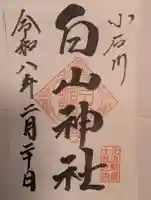 小石川
白山神社
令和八年二月二十日